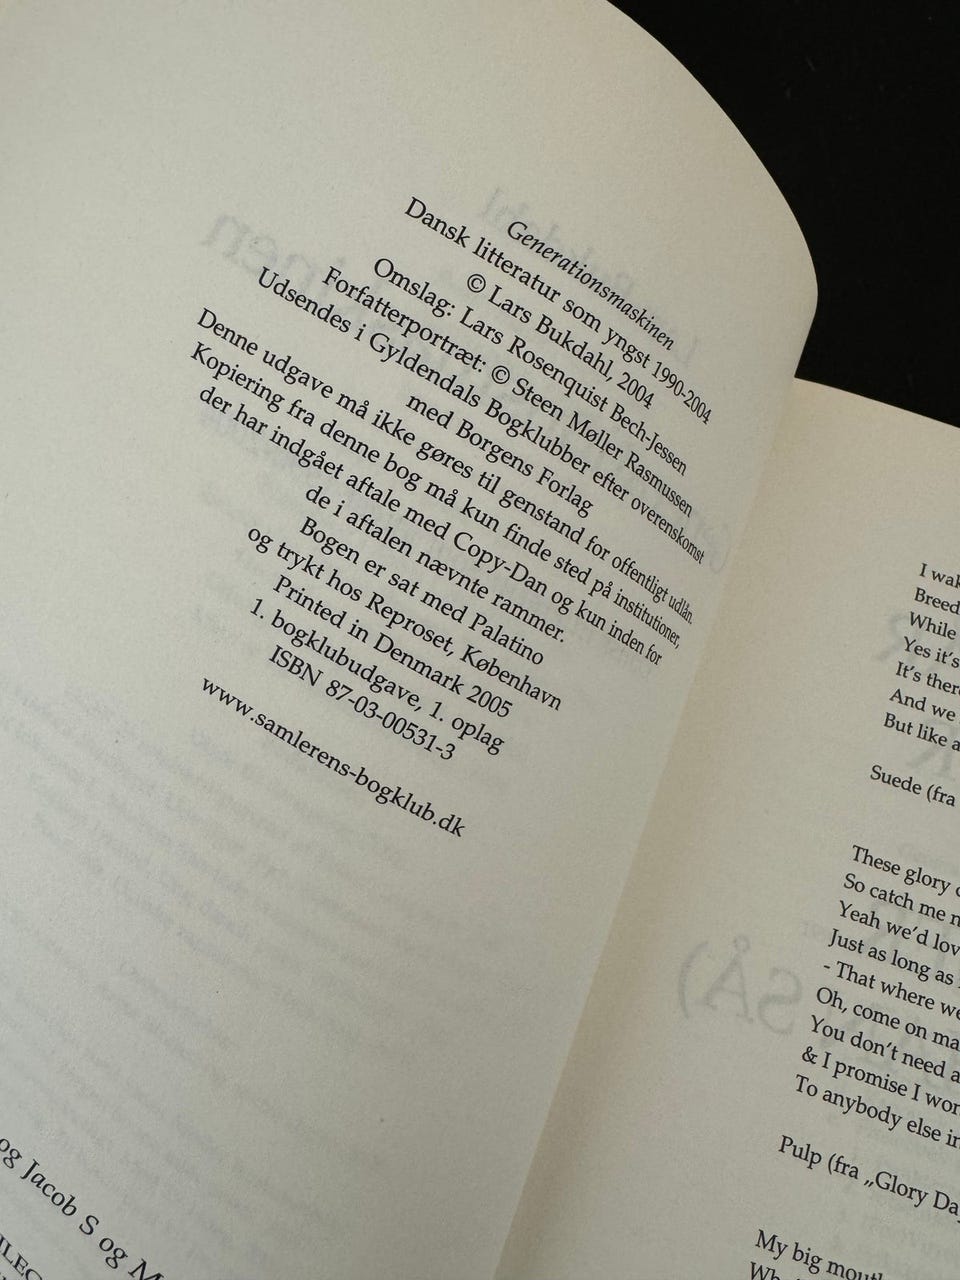 Generationsmaskinen
Dansk litteratur som yngst 1990-2004
© Lars Bukdahl, 2004
Omslag: Lars Rosenquist Bech-Jessen
Forfatterportræt: © Steen Møller Rasmussen
Udsendes i Gyldendals Bogklubber efter overenskomst
med Borgens Forlag
Denne udgave må ikke gøres til genstand for offentligt udlån.
Kopiering fra denne bog må kun finde sted på institutioner,
der har indgået aftale med Copy-Dan og kun inden for
de i aftalen nævnte rammer.
Bogen er sat med Palatino
og trykt hos Reproset, København
Printed in Denmark 2005
1. bogklubudgave, 1. oplag
ISBN 87-03-00531-3
www.samlerens-bogklub.dk
og Jacob S og M
I wak
Breed
While
Yes it's
It's ther
And we
But like a
Suede (fra
These glory
So catch me n
Yeah we'd lov
Just as long as
- That where we
Oh, come on ma
You don't need a
& I promise I wor
To anybody else in
Pulp (fra „Glory Da
My big mout